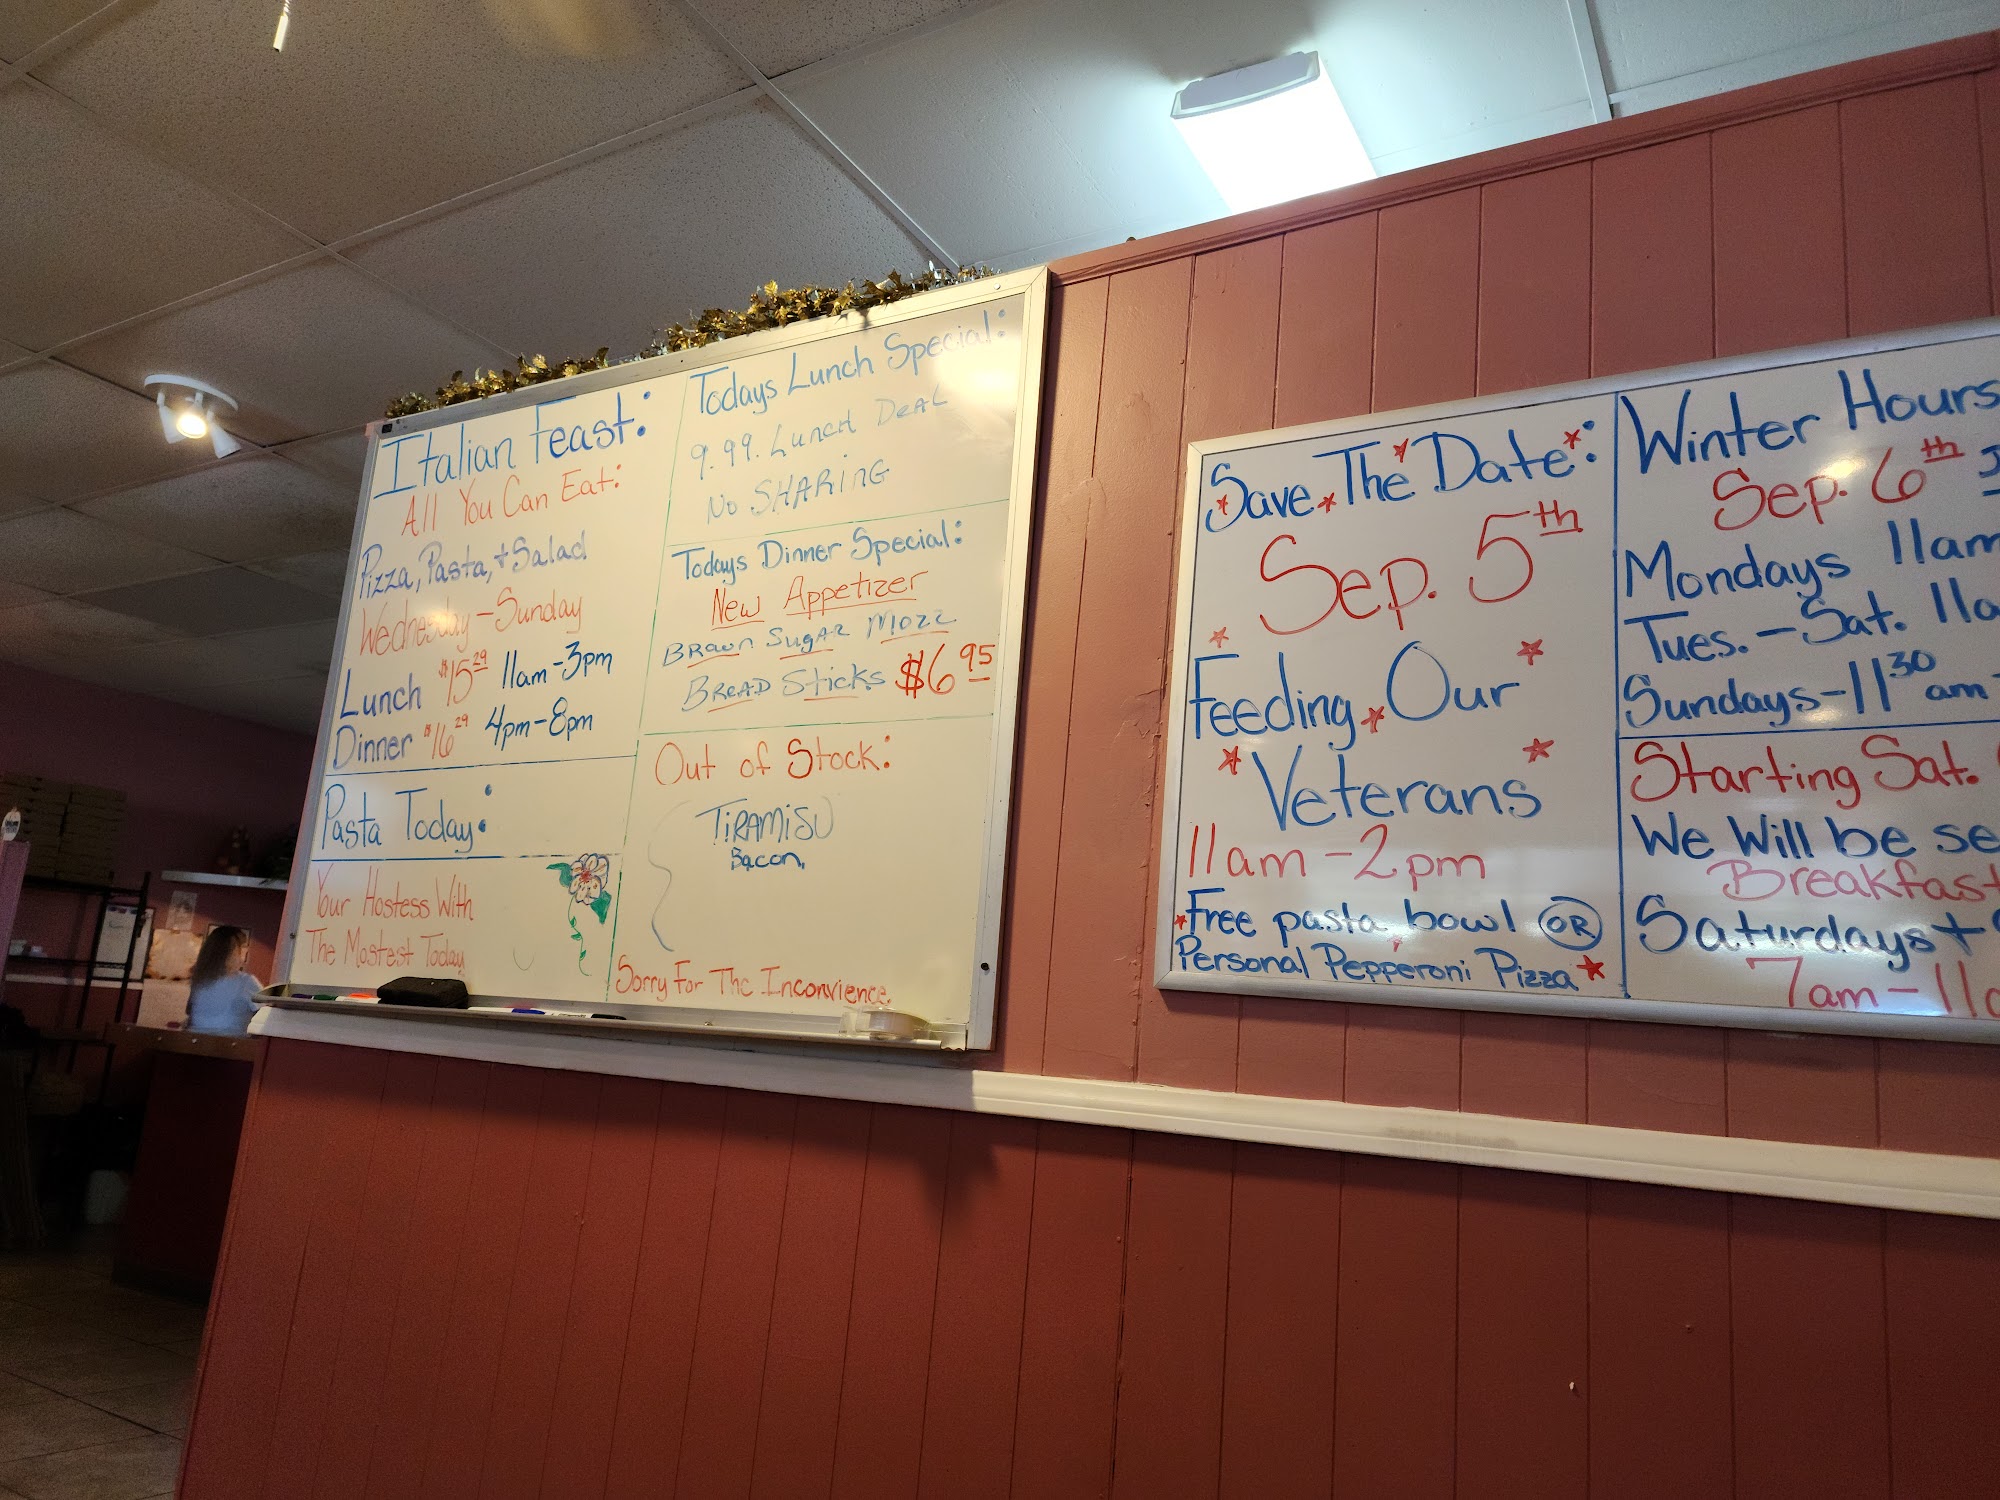 Italian Feast:
All You Can Eat:
Pizza, Pasta, + Salad
Wednesday - Sunday
Lunch $15.29 11am - 3pm
Dinner $16.29 4pm - 8pm
Pasta Today:
Your Hostess With
The Mostest Today
Todays Lunch Special:
9.99. Lunch Deal
No SHARING
Todays Dinner Special:
New Appetizer
Brown Sugar Mozz
Bread Sticks $6.95
Out of Stock:
TIRAMISU
Bacon,
Sorry For The Inconvience.
Save The Date:
Sep. 5th
Feeding Our
Veterans
11am - 2pm
Free pasta bowl OR
Personal Pepperoni Pizza
Winter Hours
Sep. 6th
Mondays 11am
Tues. - Sat. 11a
Sundays - 11 30 am -
Starting Sat.
We Will be se
Breakfast
Saturdays +
7am - 11a